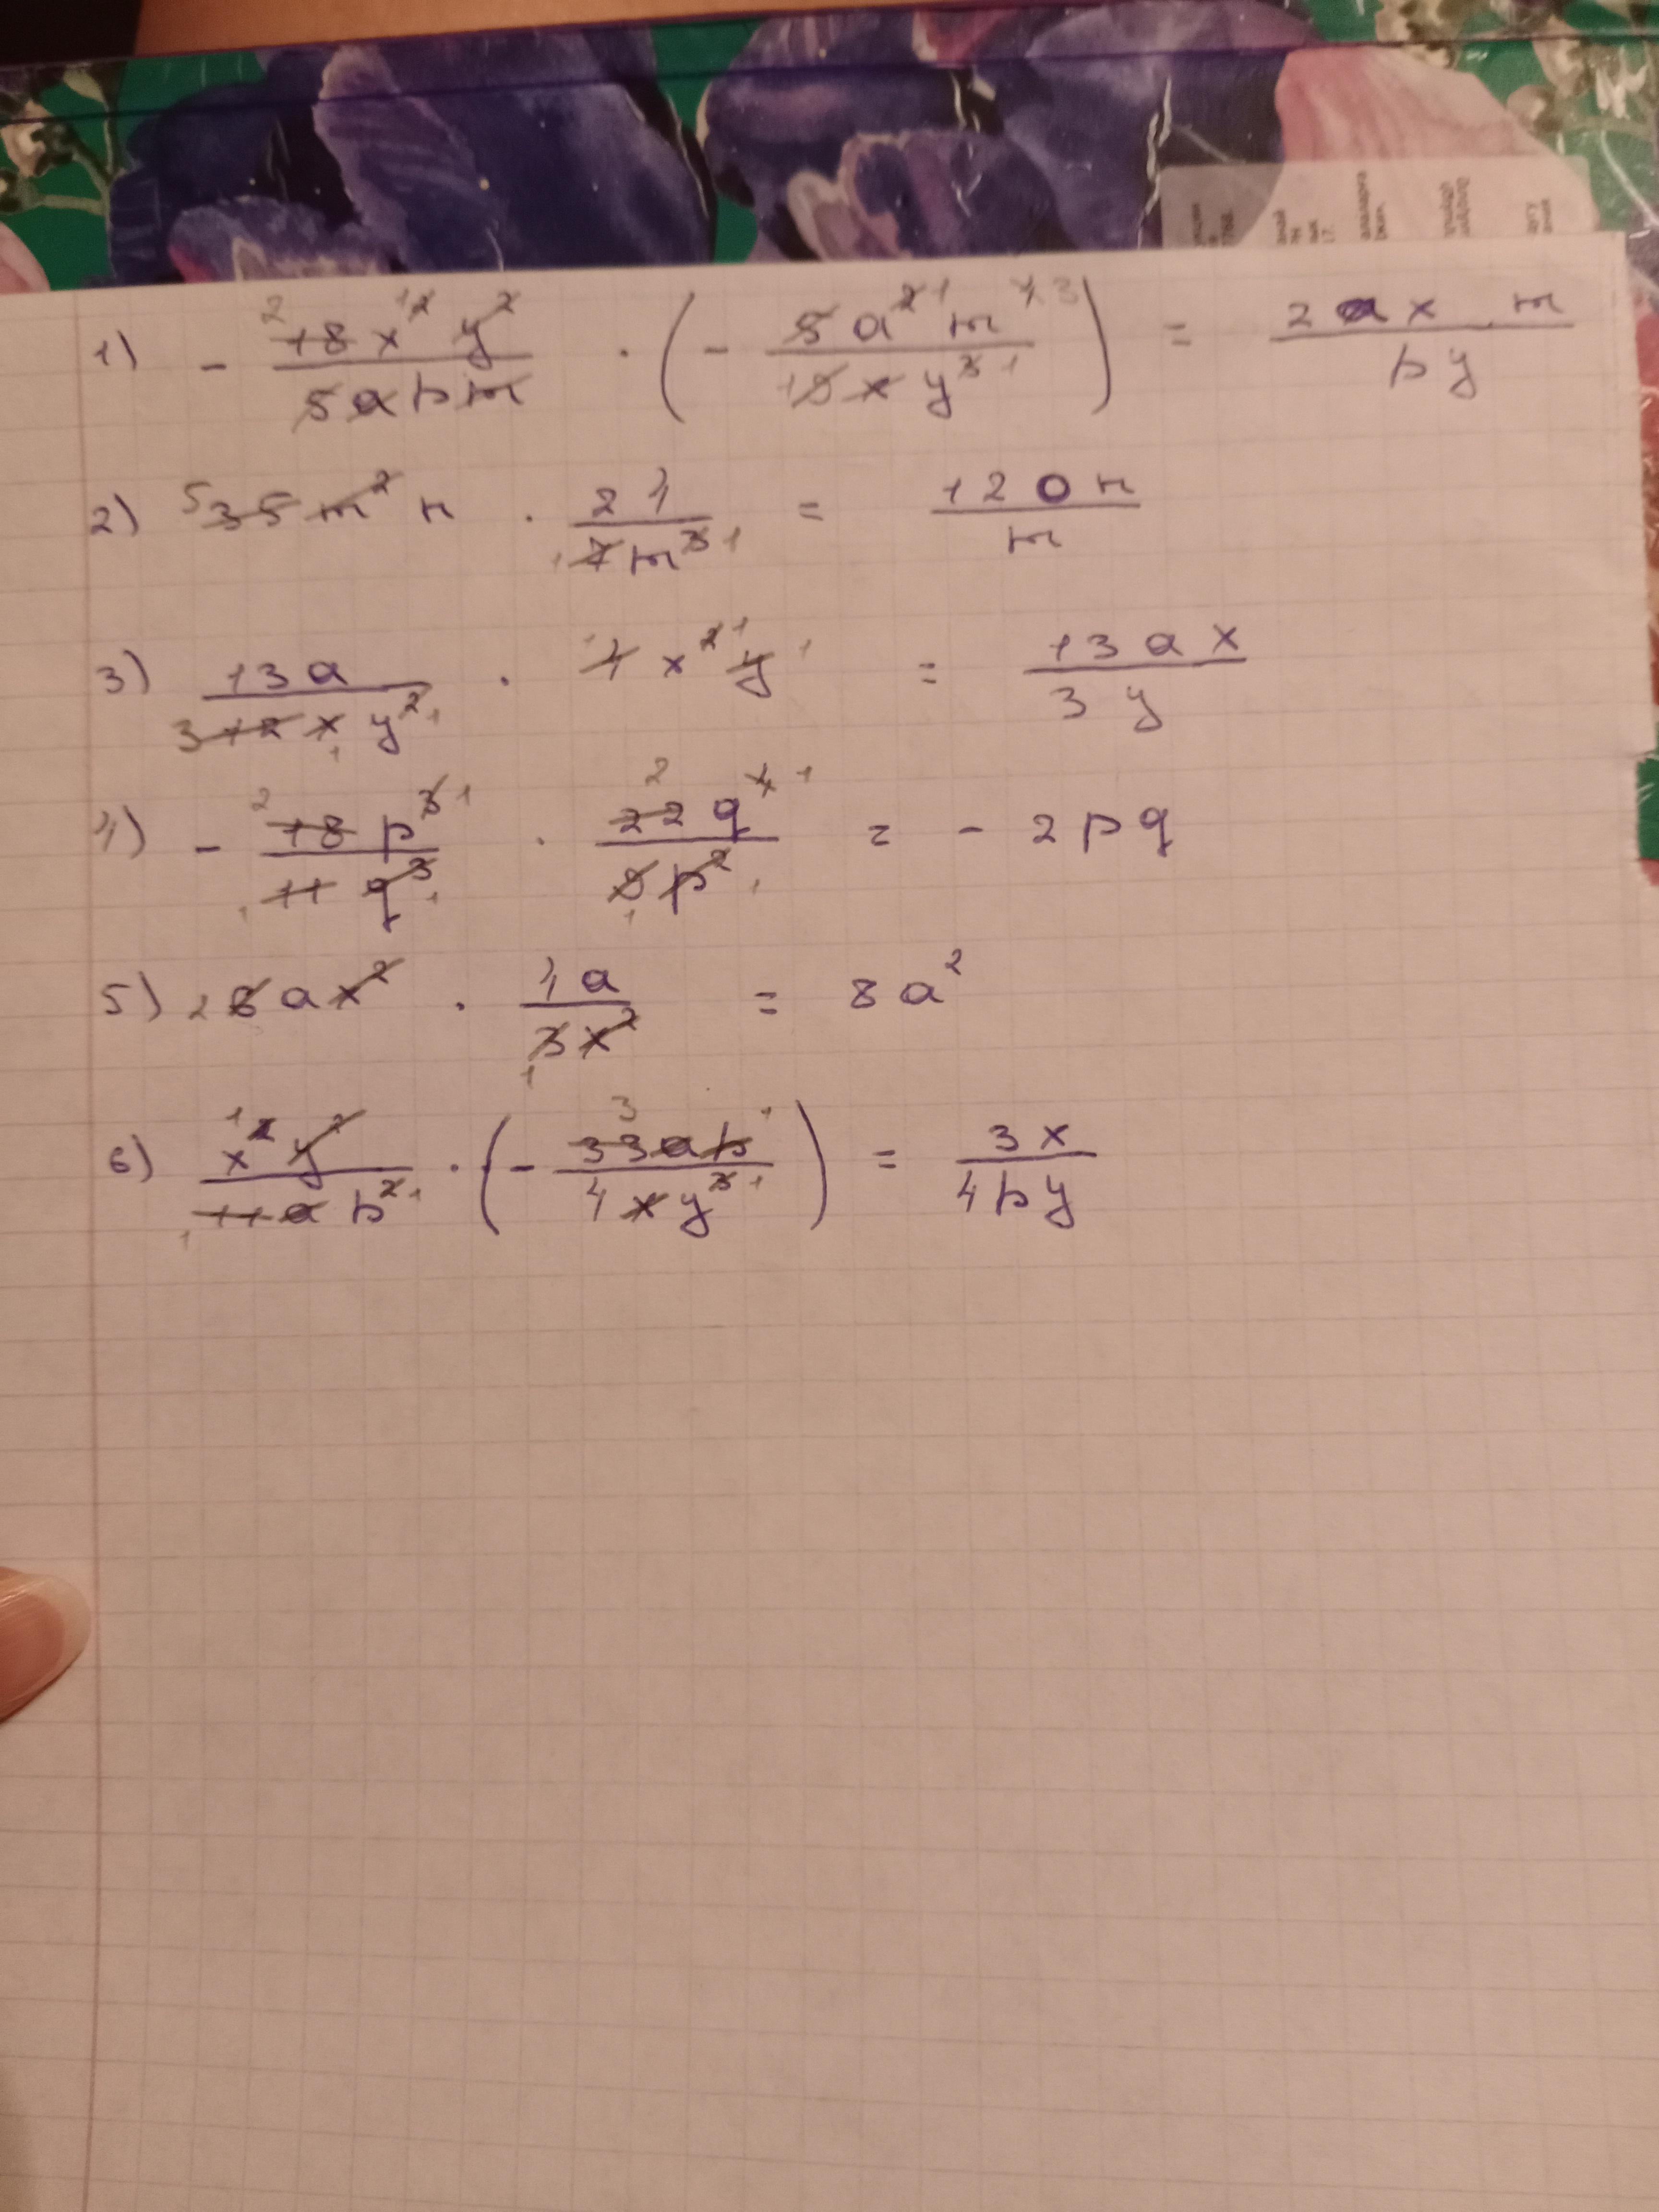 1) - 18x²y²/5abm · (- 5a²m⁴/15xy³) = 2ax m/by
2) 35m²n · 24/7m³ = 120n/m
3) 13a/12xy² · 4x²y = 13ax/3y
4) - 18p³/11q³ · 22q⁴/8p² = - 2pq
5) 6ax² · 4a/3x² = 8a²
6) x²y²/11ab² · (- 33ab/4xy³) = 3x/4by